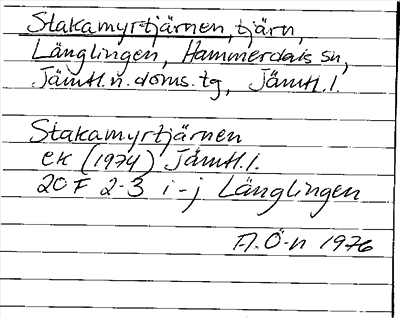 Stakamyrtjärnen, tjärn,
Länglingen, Hammerdals sn,
Jämtl. n. doms. tg, Jämtl. l.
Stakamyrtjärnen
ek (1974) Jämtl. l.
20 F 2-3 i-j Länglingen
A. Ö-n 1976